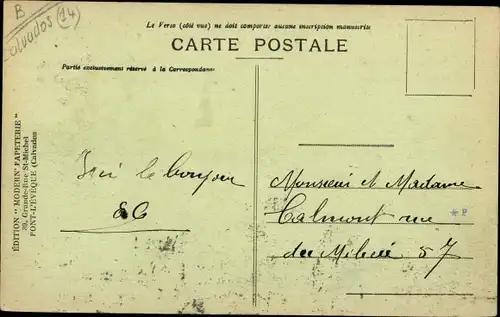 B
Calvados (14)
Le Verso (côté vue) ne doit comporter aucune inscription manuscrite
CARTE POSTALE
Partie exclusivement réservé à la Correspondance
ÉDITION " MODERN' PAPETERIE "
29, Grande-Rue St-Michel
PONT-L'EVÊQUE (Calvados
le bonjour
Monsieur et Madame
Calmont rue
* P
du Milieu 57